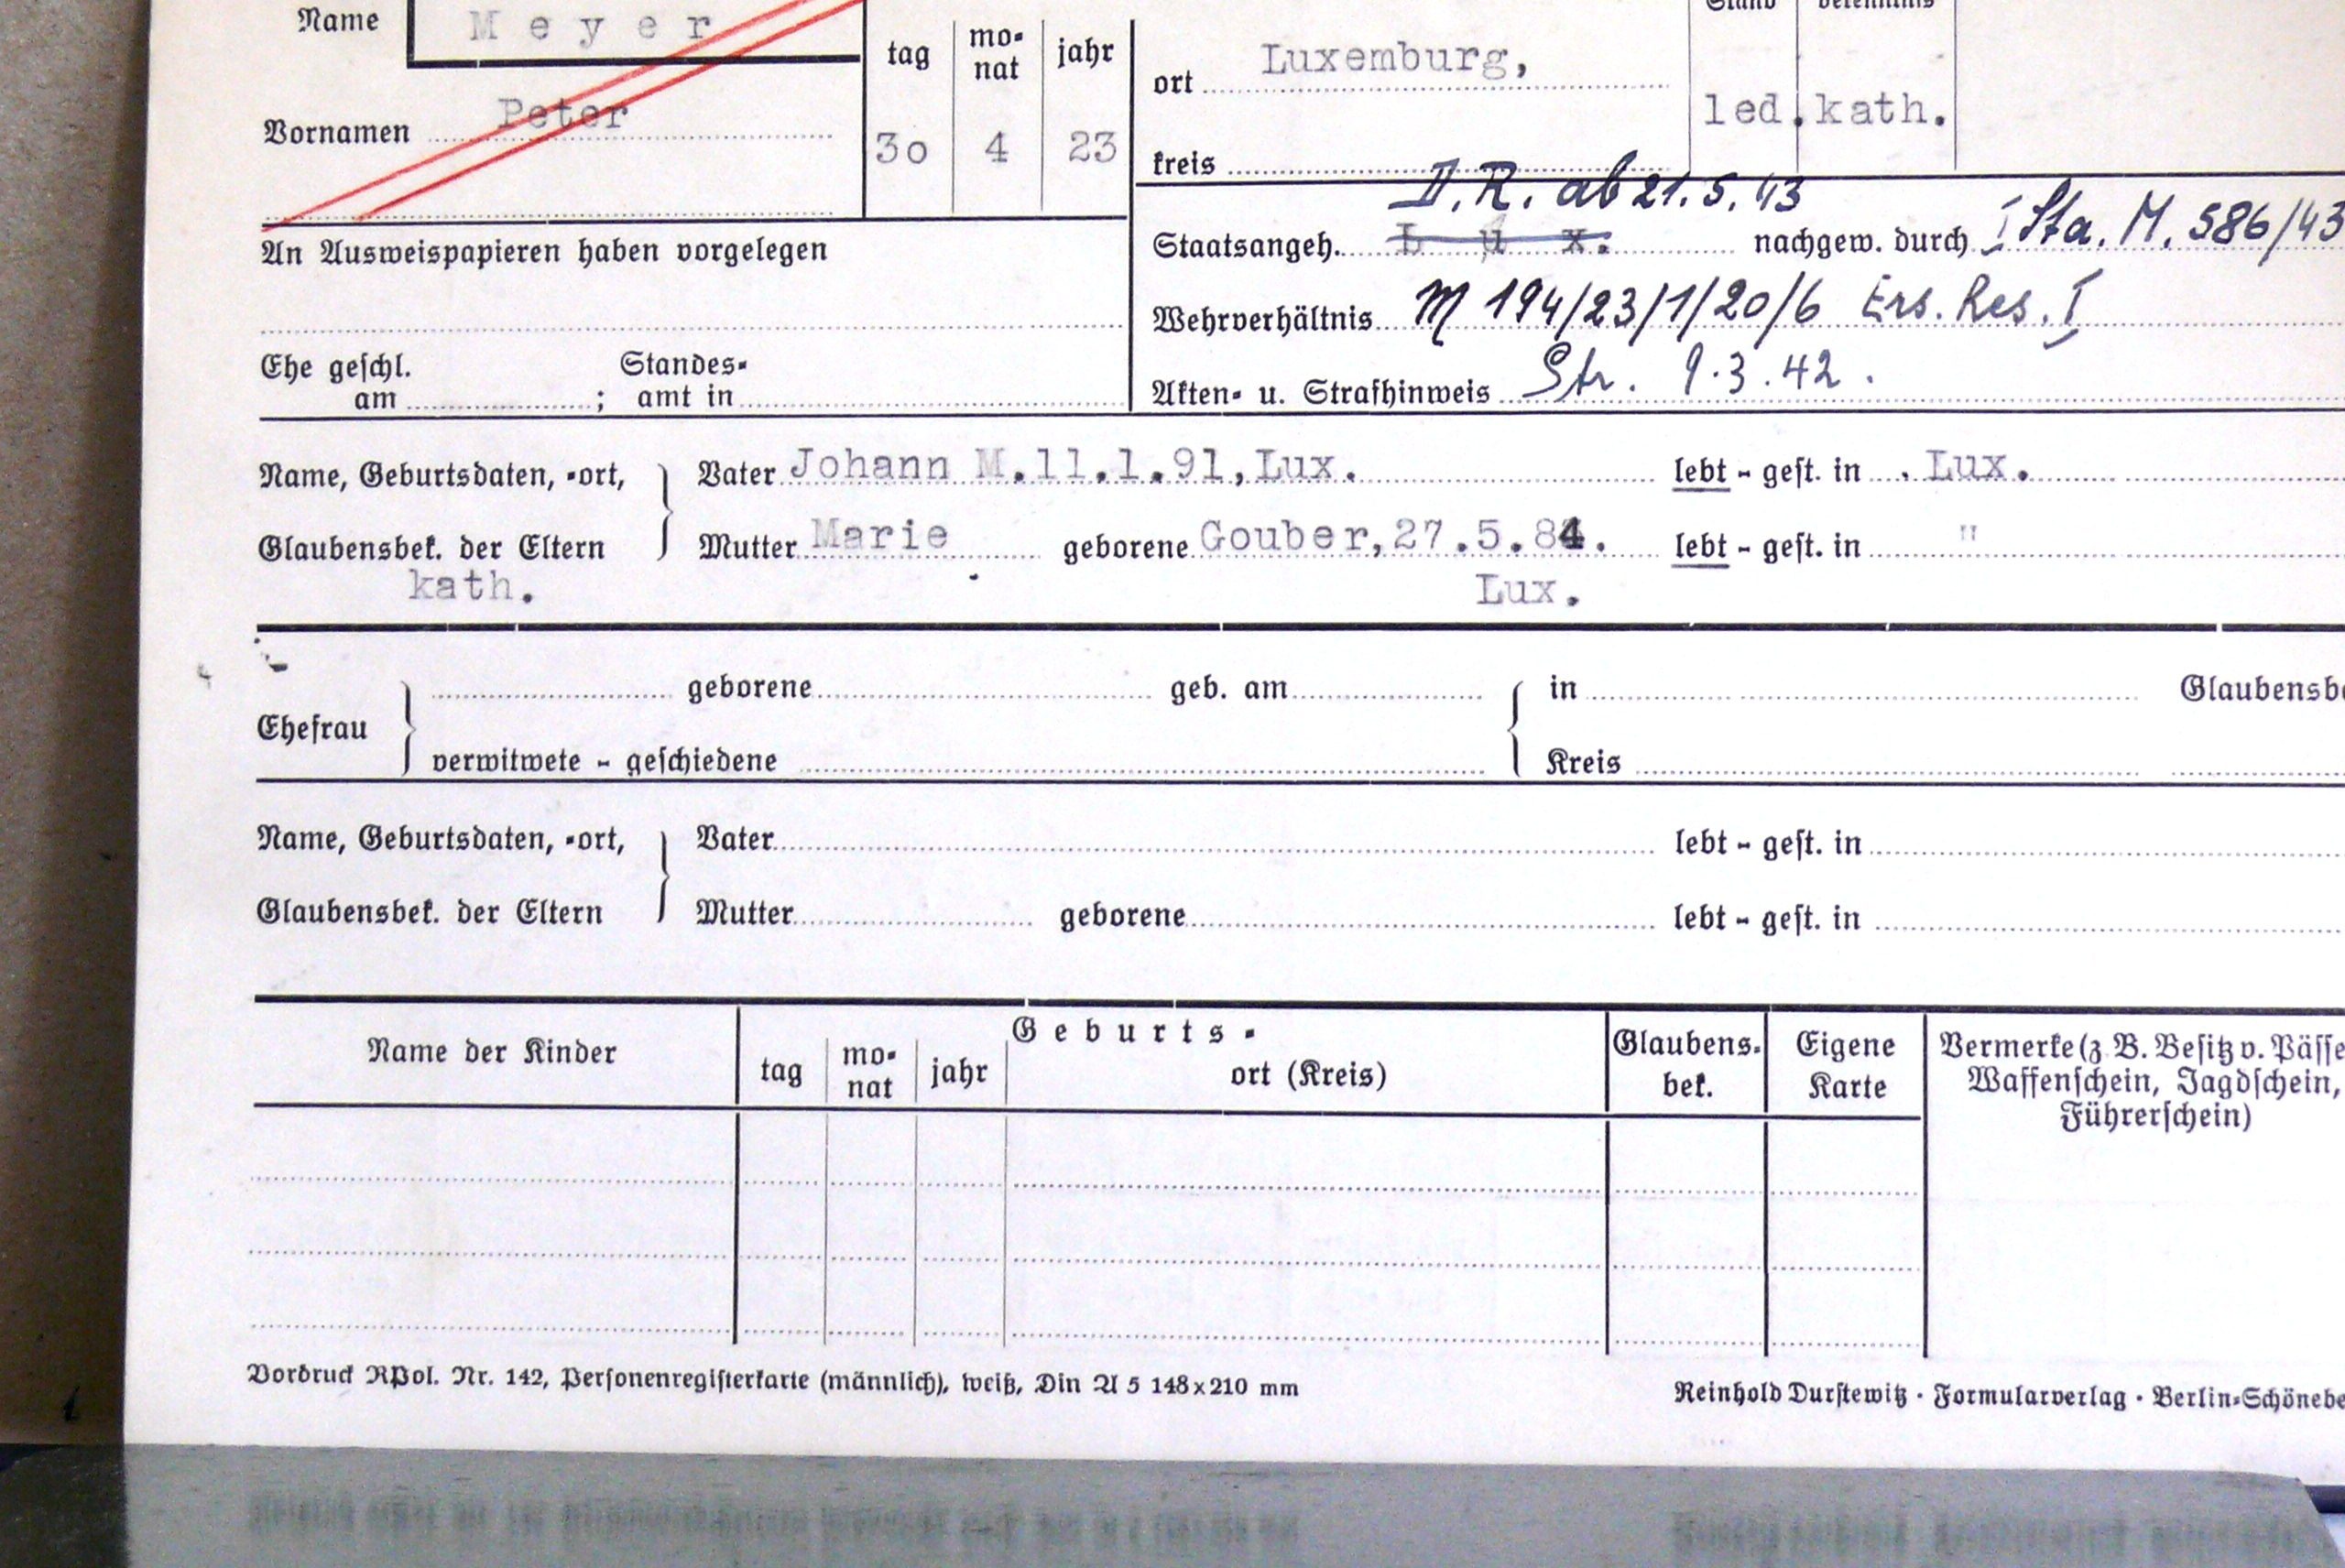 Name Meyer
tag monat jahr
ort Luxemburg,
Vornamen Peter
30 4 23
led. kath.
kreis
D.R. ab 21.5.43
An Ausweispapieren haben vorgelegen
Staatsangeh. Lux. nachgew. durch I Sta. M. 586/43
Wehrverhältnis M 194/23/1/20/6 Ers. Res. I
Ehe geschl. am ; Standesamt in
Akten- u. Strafhinweis Str. 9.3.42.
Name, Geburtsdaten, -ort, Vater Johann M.11.1.91,Lux. lebt - gest. in Lux.
Glaubensbek. der Eltern Mutter Marie geborene Gouber,27.5.84. lebt - gest. in "
kath. Lux.
geborene geb. am in
Ehefrau
verwitwete - geschiedene Kreis
Name, Geburtsdaten, -ort, Vater lebt - gest. in
Glaubensbek. der Eltern Mutter geborene lebt - gest. in
Name der Kinder Geburts- Glaubensbek. Eigene Karte Vermerke (z. B. Besitz v. Pässe
tag monat jahr ort (Kreis) Waffenschein, Jagdschein,
Führerschein)
Vordruck RPol. Nr. 142, Personenregisterkarte (männlich), weiß, Din A 5 148x210 mm
Reinhold Durstewitz · Formularverlag · Berlin-Schönebe